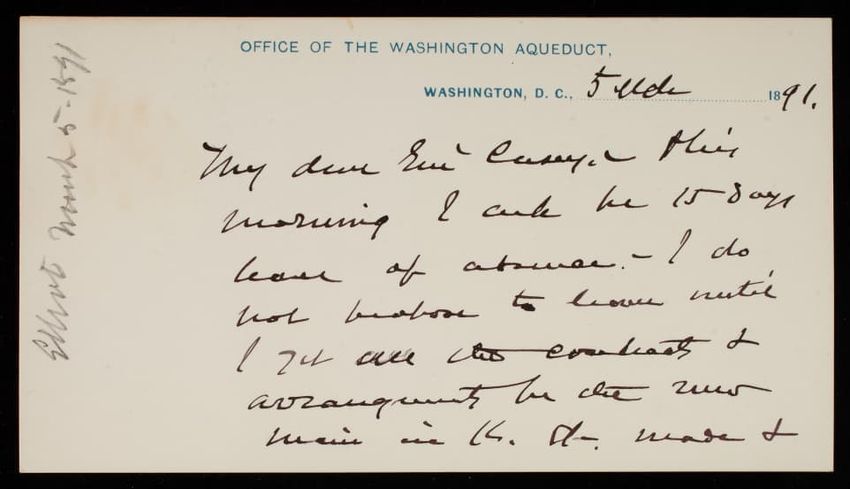 OFFICE OF THE WASHINGTON AQUEDUCT,
WASHINGTON, D. C., 5 Mch 1891.
My dear Genl Casey, - This
morning I ask for 15 days
leave of absence. - I do
not propose to leave until
I get all the contracts &
arrangements for the new
main in K. St. made &
Elliot March 5 - 1891